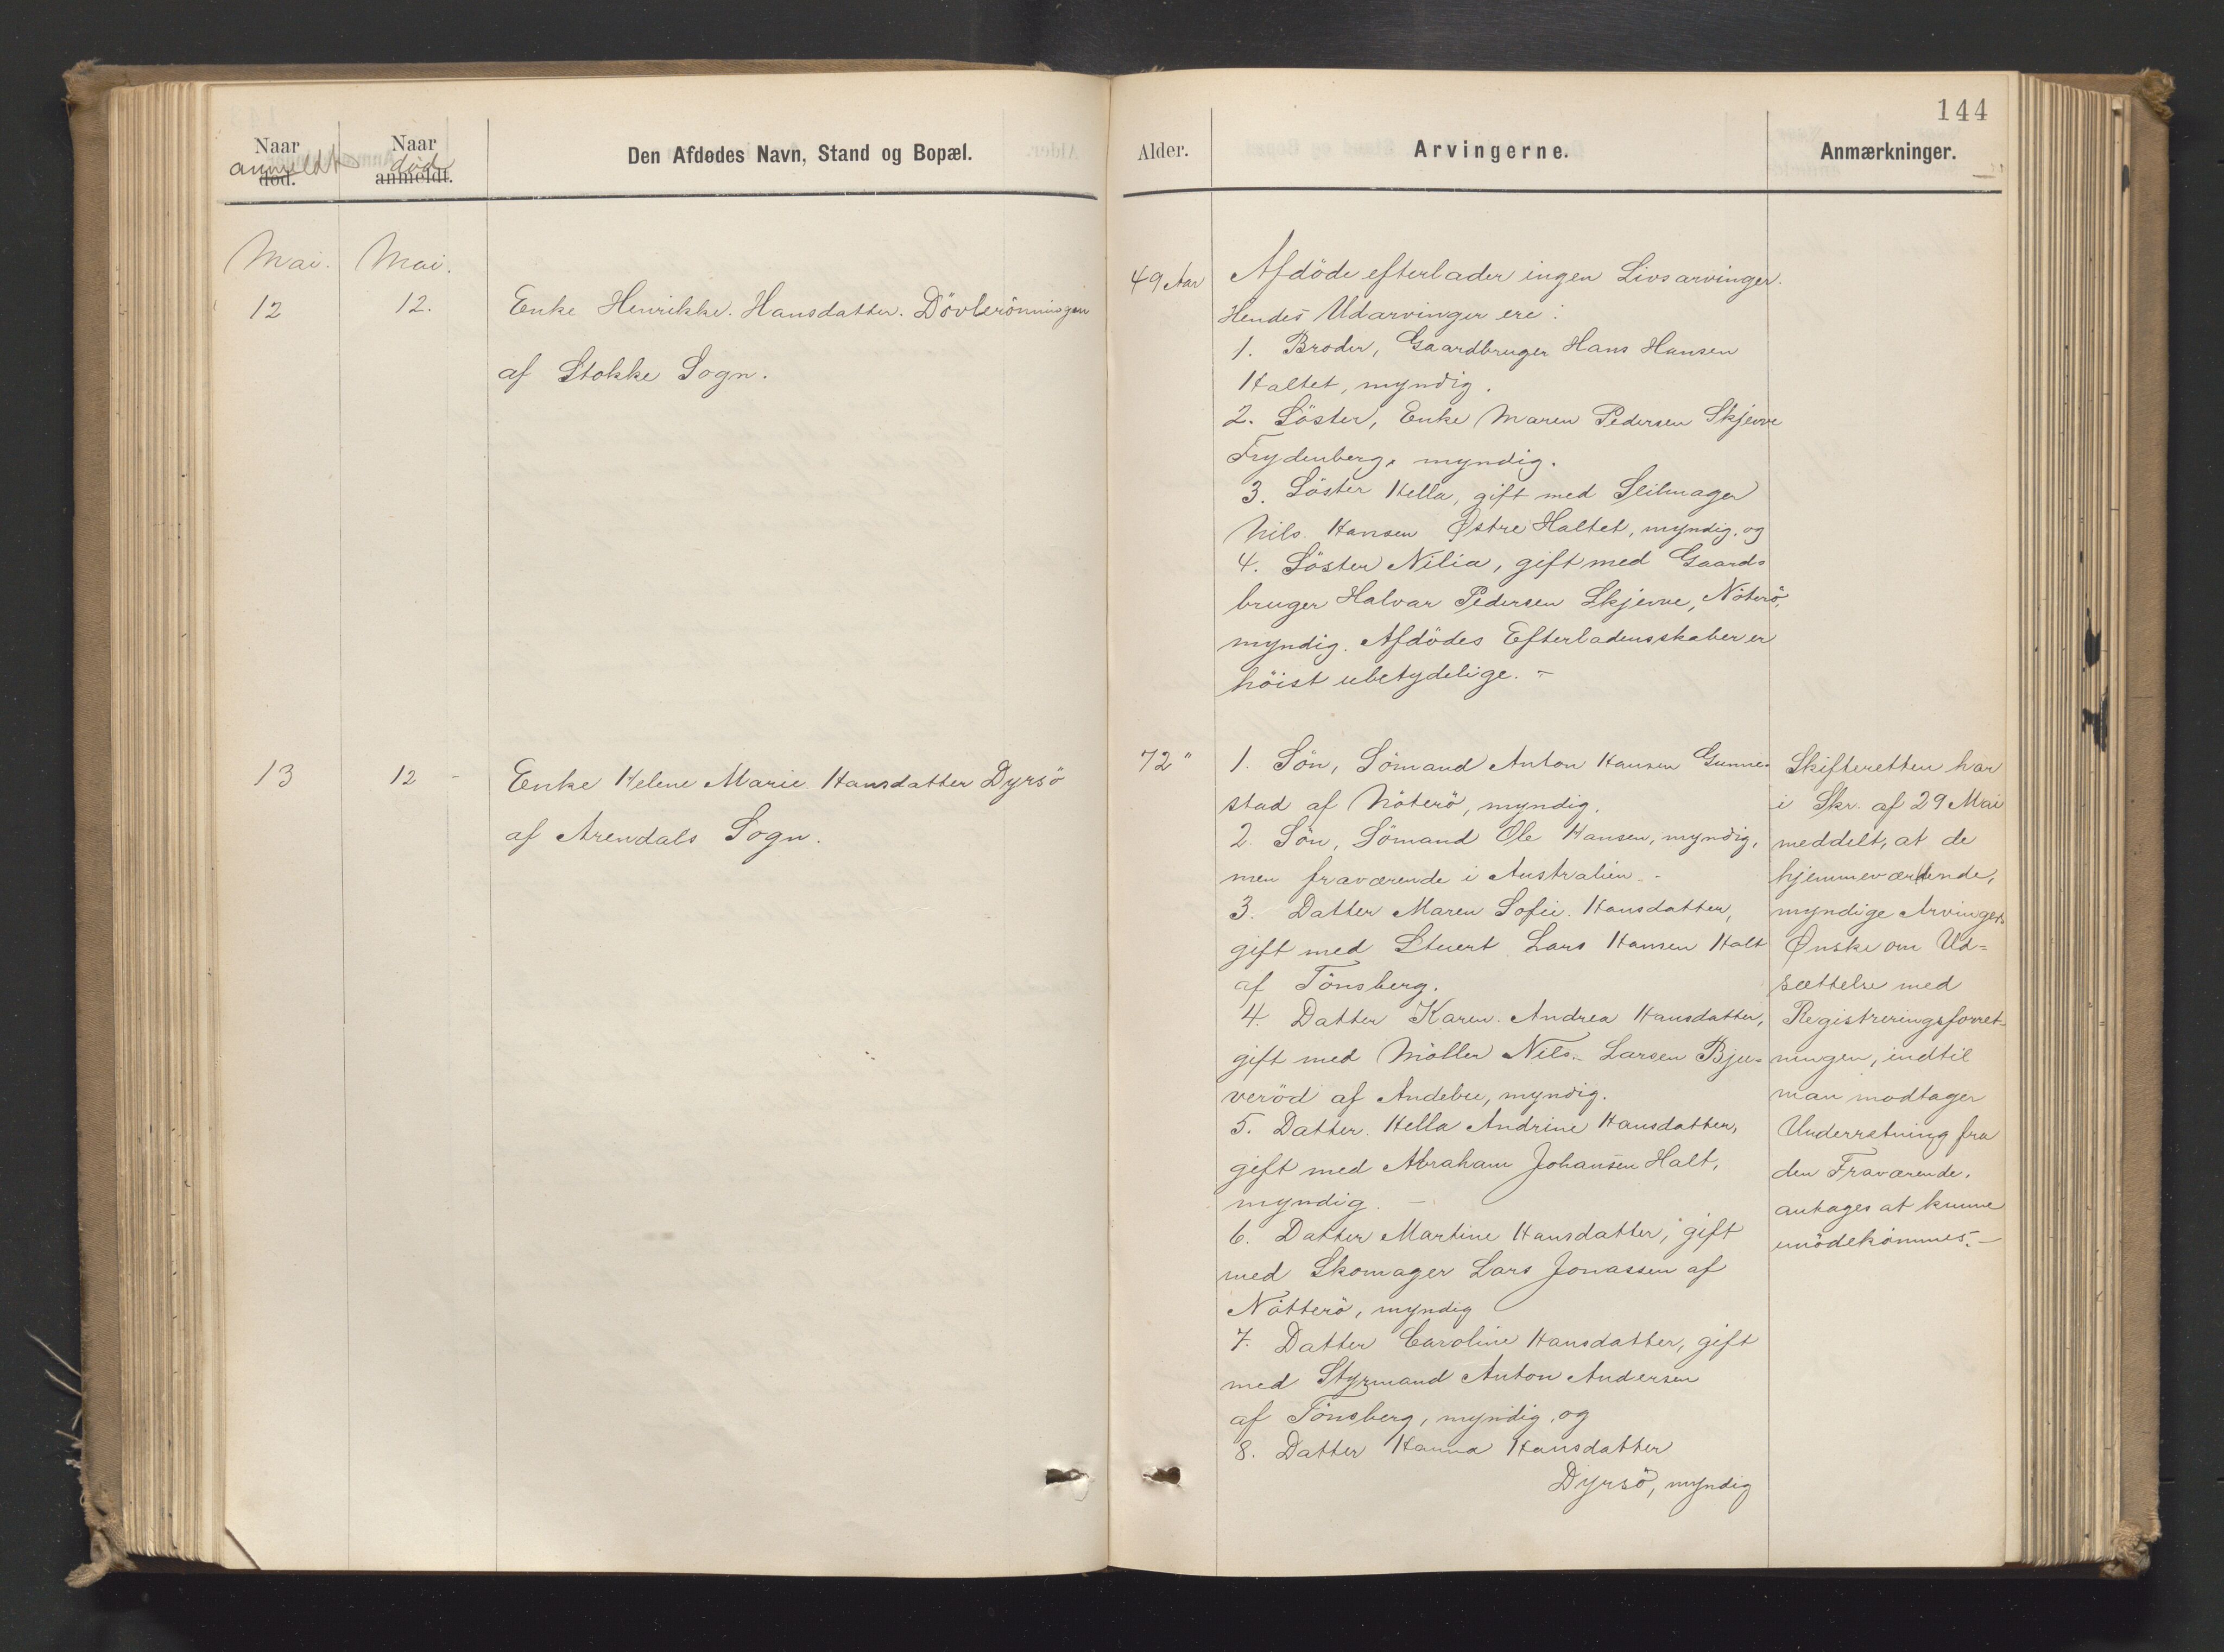 144
Naar anmeldt død.
Naar død anmeldt.
Den Afdødes Navn, Stand og Bopæl.
Alder.
Arvingerne.
Anmærkninger.
Mai. Mai.
12 12. Enke Henrikke Hansdatter. Dövlerönningen
af Stokke Sogn.
49 Aar
Afdöde efterlader ingen Livsarvinger.
Hendes Udarvinger ere:
1. Broder, Gaardbruger Hans Hansen
Haltet, myndig.
2. Söster, Enke Maren Pedersen Skjerve
Frydenberg, myndig.
3. Söster Hella, gift med Seilmager
Nils Hansen Østre Haltet, myndig. og
4. Söster Nilia, gift med Gaard-
bruger Halvar Pedersen Skjerve, Nöterö,
myndig. Afdödes Efterladensskaber er
höist ubetydelige. -
13 12 - Enke Helene Marie Hansdatter Dyrsö
af Arendals Sogn.
72 "
1. Sön, Sömand Anton Hansen Gunne-
stad af Nöterö, myndig.
2. Sön, Sömand Ole Hansen, myndig,
men fraværende i Australien. -
3. Datter Maren Sofie Hansdatter,
gift med Stuert Lars Hansen Halt
af Tönsberg.
4. Datter Karen Andrea Hansdatter,
gift med Möller Nils Larsen Bju-
veröd af Andebu, myndig.
5. Datter Hella Andrine Hansdatter,
gift med Abraham Johansen Halt,
myndig. -
6. Datter Martine Hansdatter, gift
med Skomager Lars Jonassen af
Nötterö, myndig
7. Datter Caroline Hansdatter, gift
med Styrmand Anton Andersen
af Tönsberg, myndig, og
8. Datter Hanna Hansdatter
Dyrsö, myndig
Skifteretten har
i Skr. af 29 Mai
meddelt, at de
hjemmeværende,
myndige Arvingers
Ønske om Ud-
sættelse med
Registreringsforret-
ningen, indtil
man modtager
Underretning fra
den Fraværende,
antages at kunne
imödekommes. -